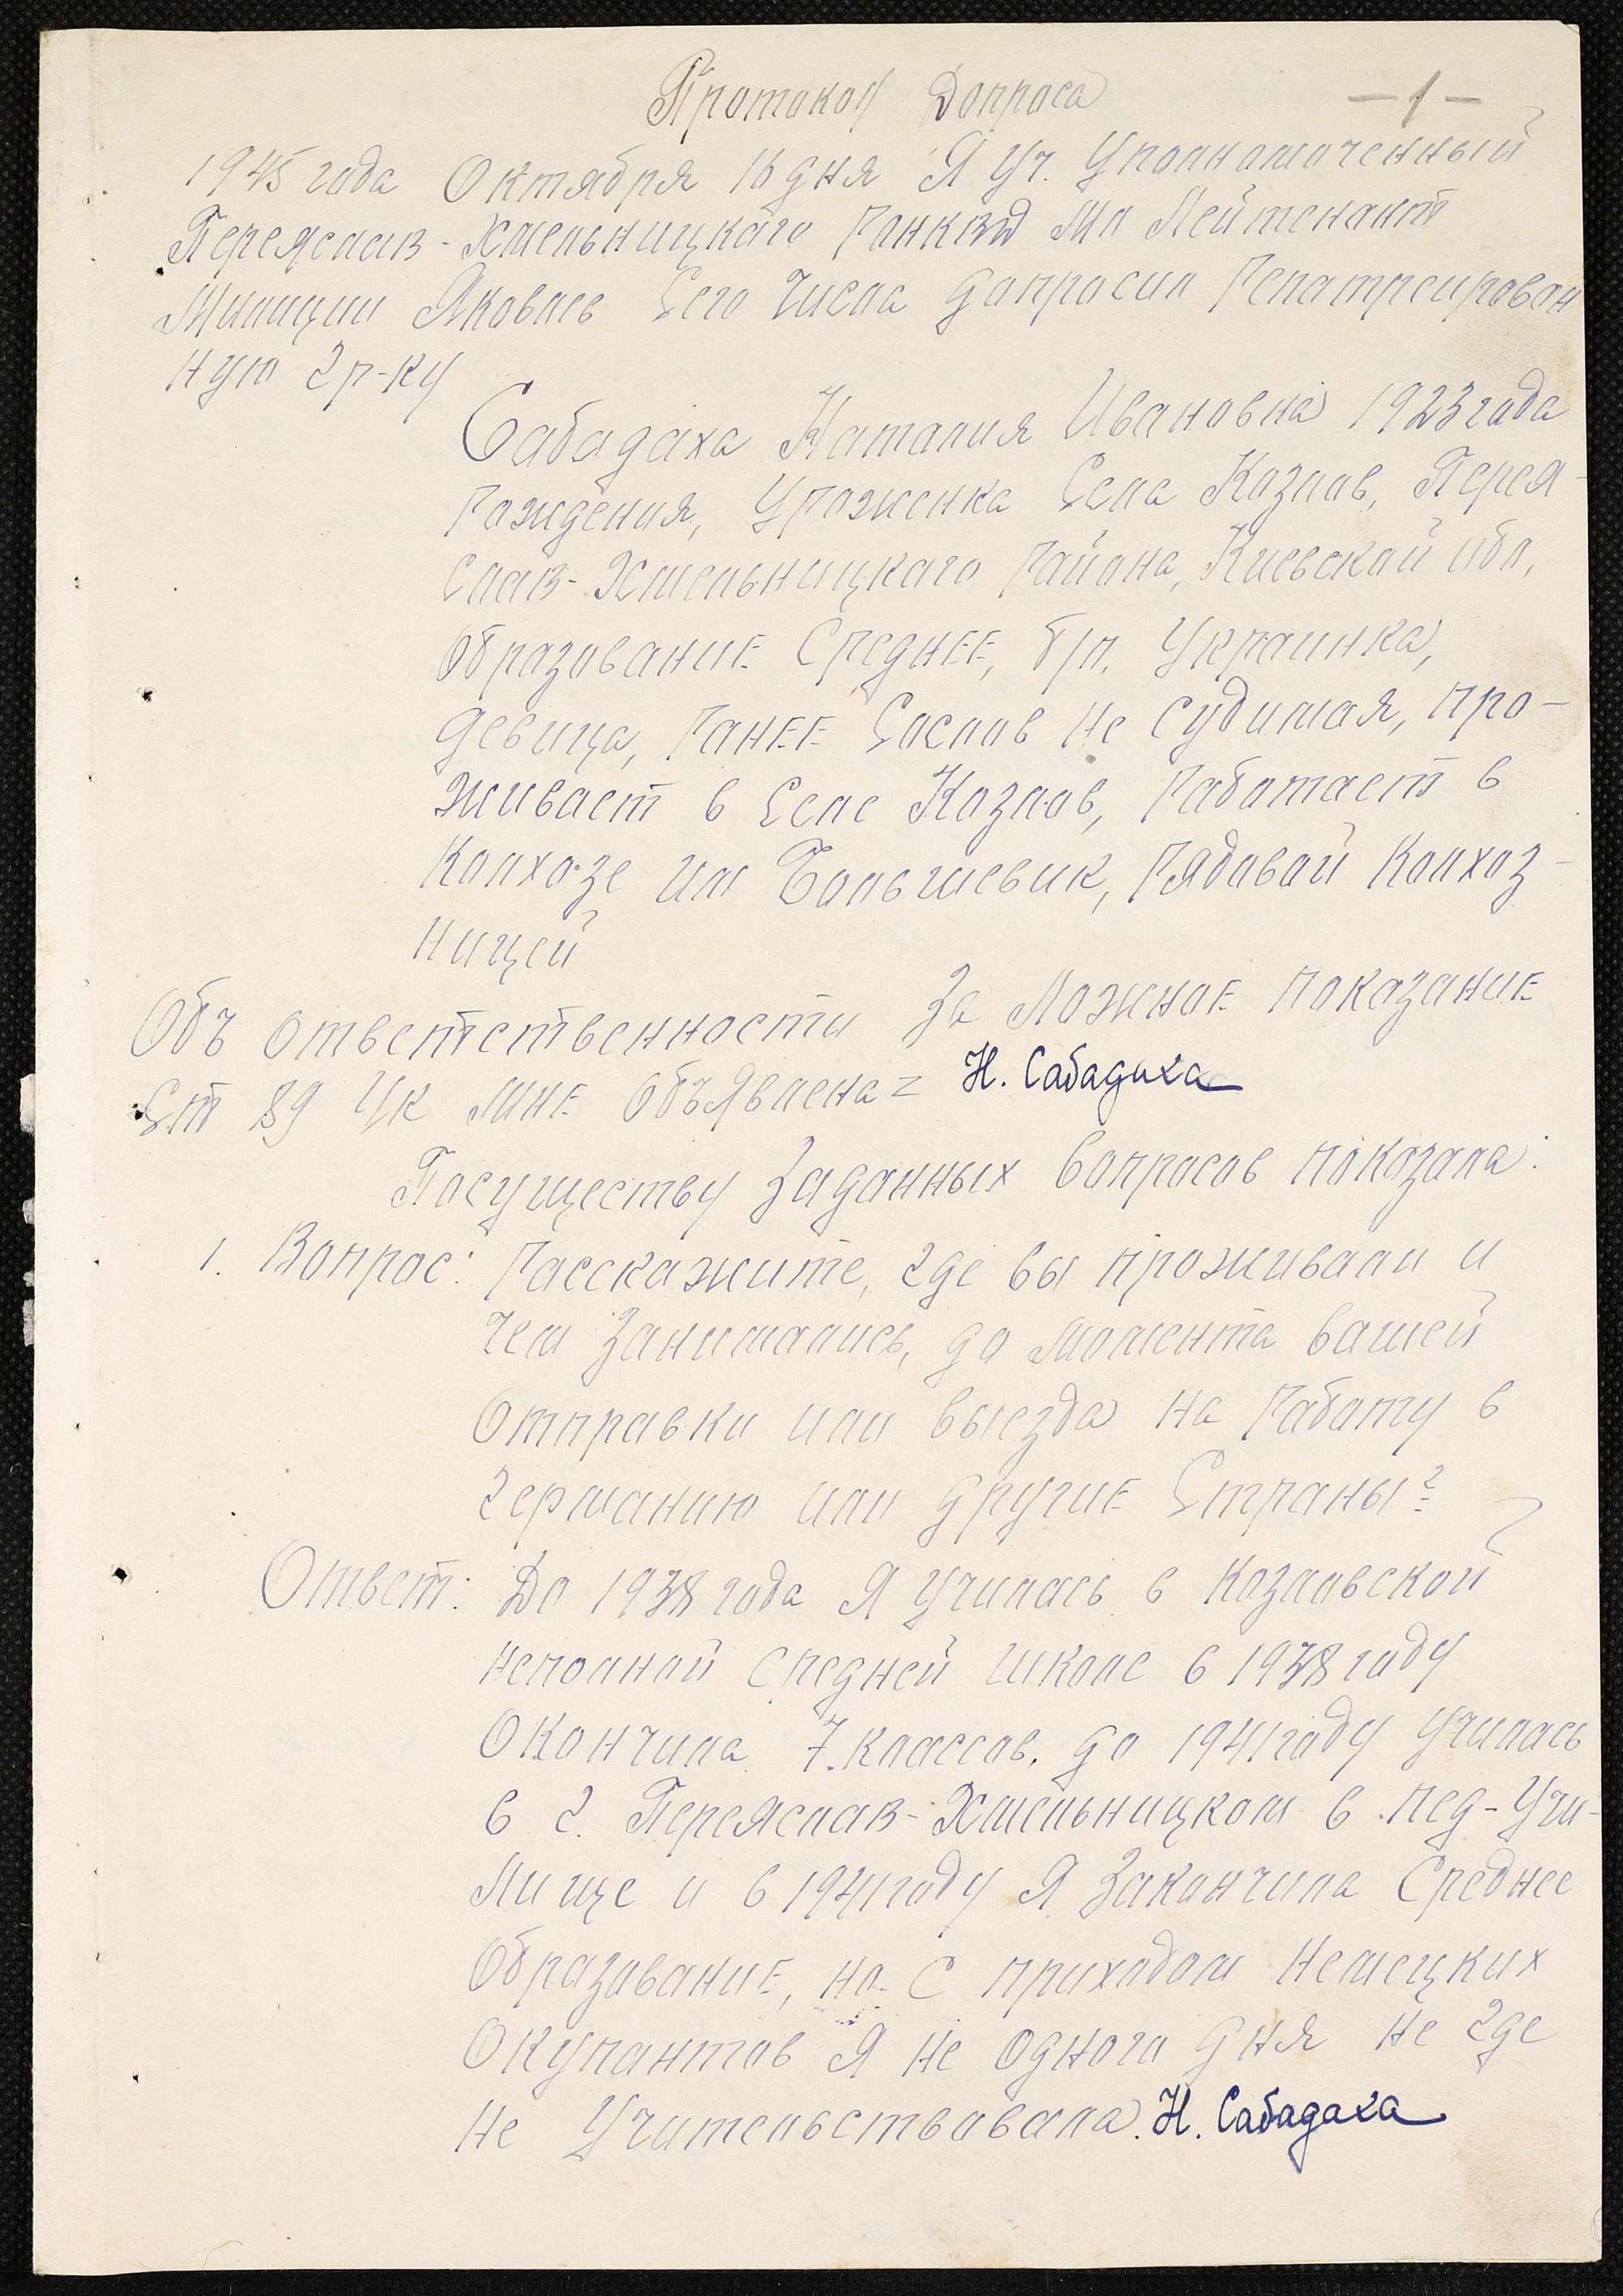 Протокол Допроса
- 1 -
1945 года Октября 16 дня Я Уч. Уполномоченный
Переяслав-Хмельницкаго РОНКВД Мл Лейтенант
Милиции Яковлев Сего Числа допросил Репатреирован
ную гр-ку
Сабадаха Наталия Ивановна 1923 года
Рождения, Уроженка Села Козлов, Перея-
Слав-Хмельницкаго Района, Киевской обл,
Образование Среднее, б/п. Украинка,
девица, Ранее Со слов не судимая, про-
живает в Селе Козлов, Работает в
Колхозе им Большевик, Рядовой Колхоз-
ницей
Объ ответственности за Ложное показание
Ст 89 Ук мне объявлена = Н. Сабадаха
По существу Заданных вопросов показала:
1. Вопрос: Расскажите, где вы проживали и
Чем Занимались, до момента вашей
Отправки или выезда на Работу в
Германию или другие Страны?
Ответ: До 1938 года Я Училась в Козловской
неполной Средней школе в 1938 году
Окончила 7. классов. до 1941 году Училась
в г. Переяслав-Хмельницком в пед-Учи-
лище и в 1941 году Я Закончила Среднее
Образование, но С приходом Немецких
Окупантов Я не одного дня не где
не Учительствовала. Н. Сабадаха